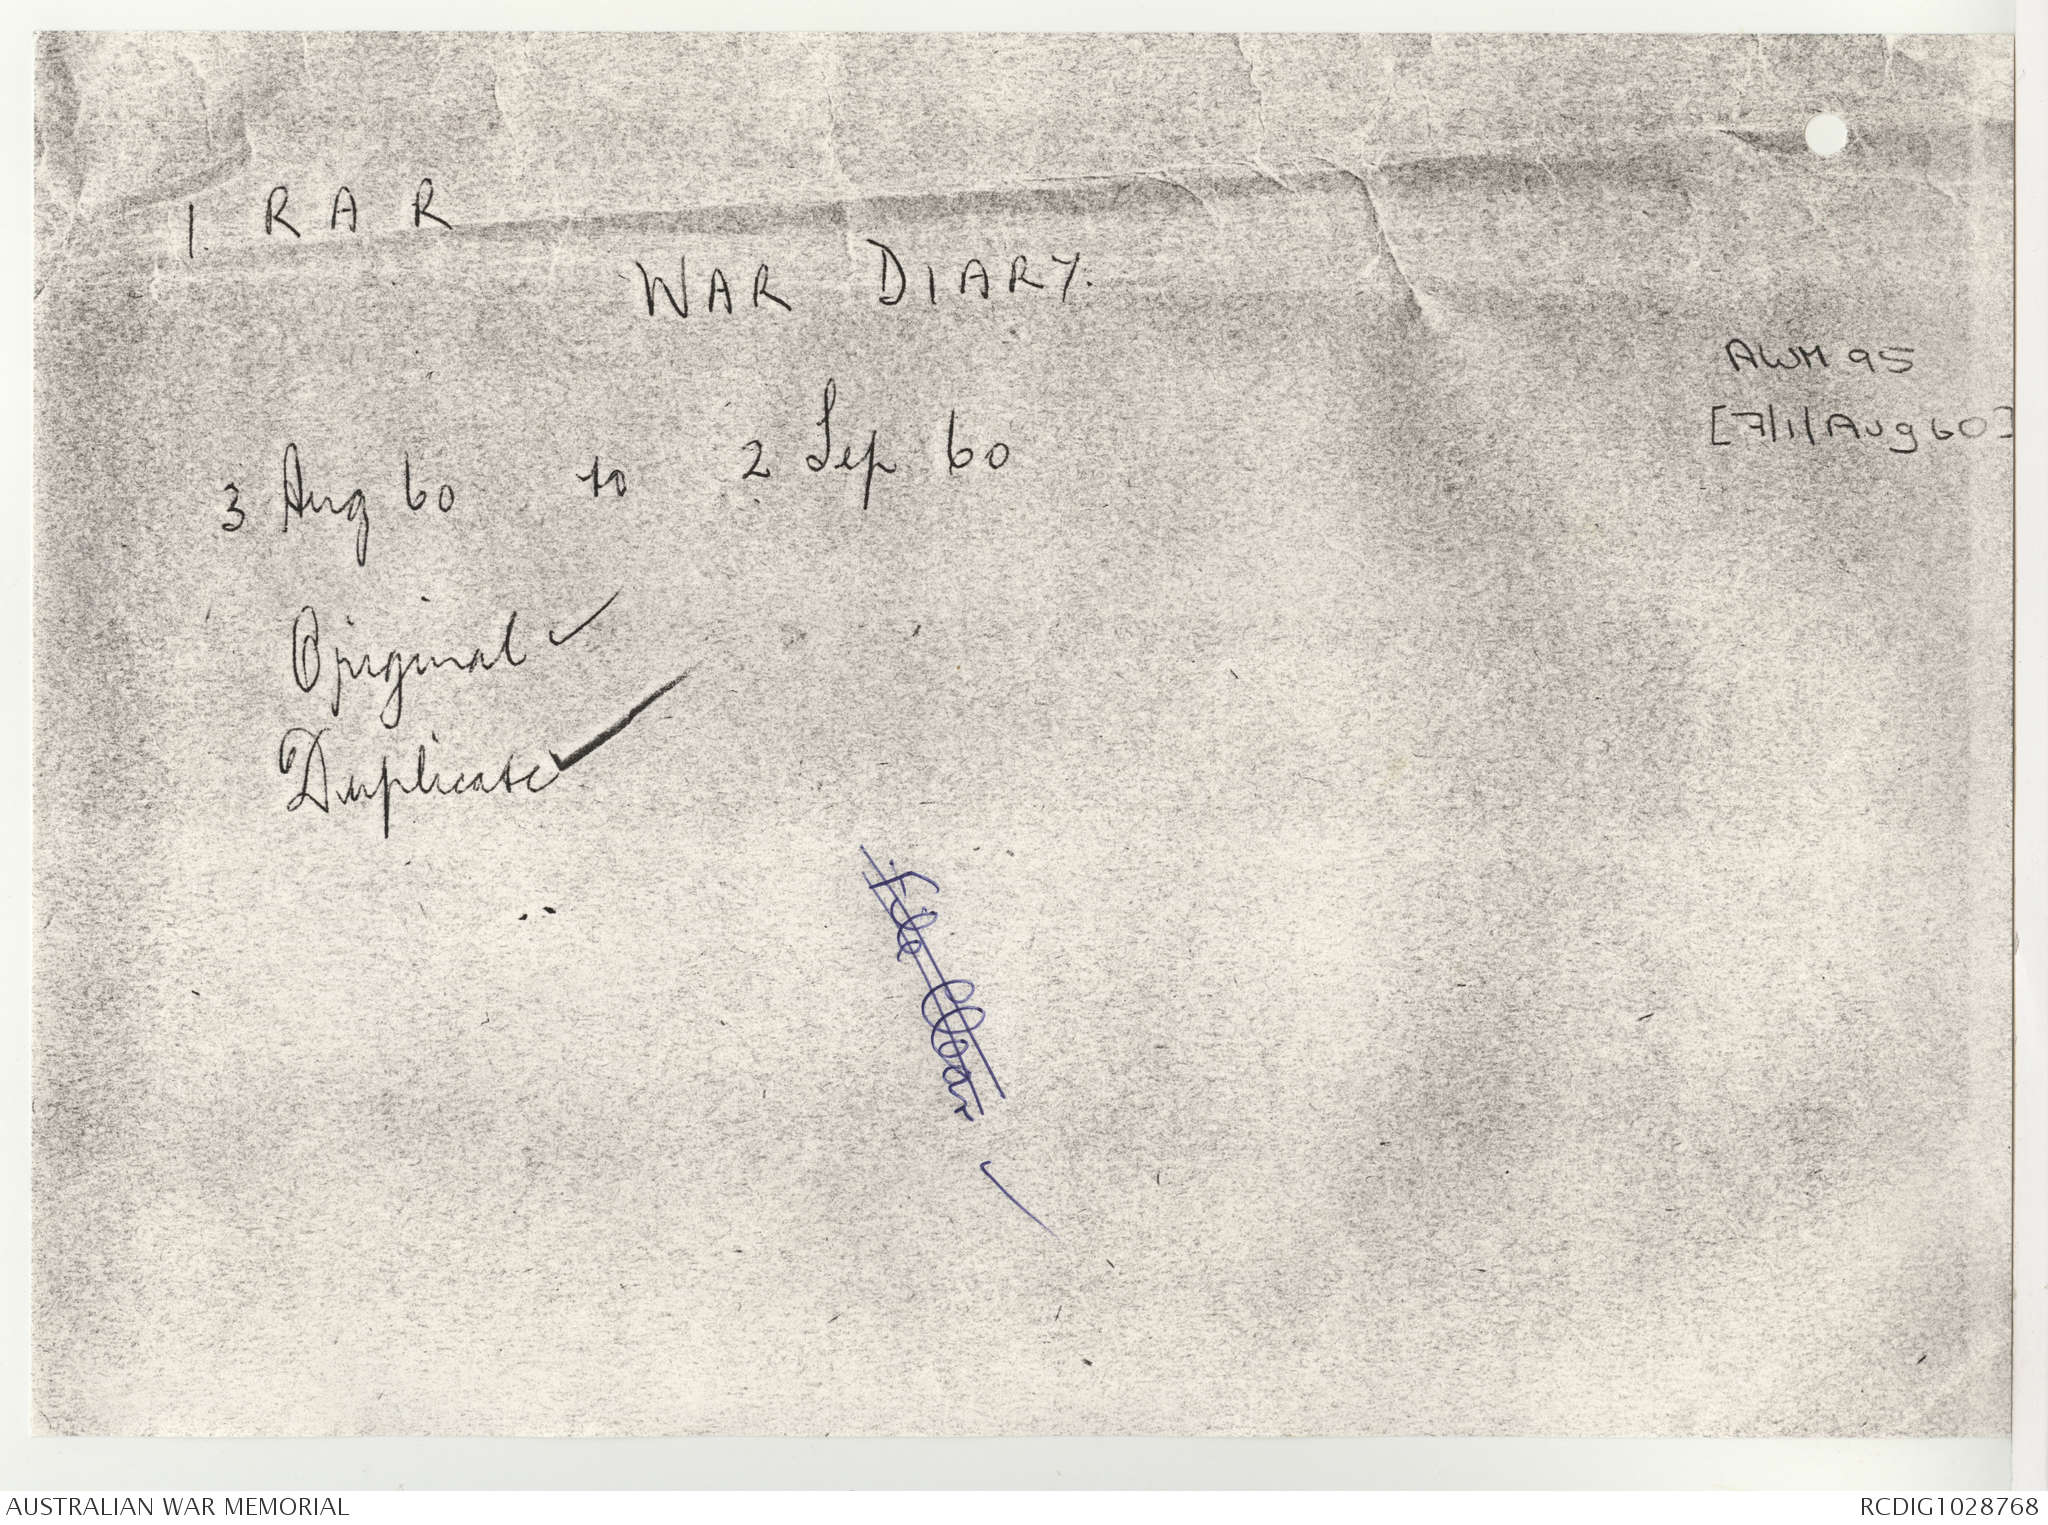 1 RAR
WAR DIARY.
AWM 95
[7/1/Aug 60]
3 Aug 60 to 2 Sep 60
Original ✓
Duplicate ✓
File
✓
AUSTRALIAN WAR MEMORIAL
RCDIG1028768